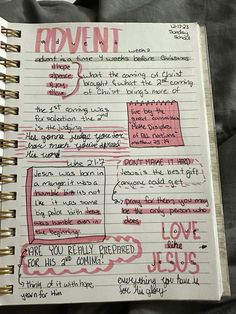 12-17-23
Sunday
School
ADVENT
week 3
advent is a time 4 weeks before Christmas
hope
peace
joy
love
what the coming of Christ
brought & what the 2nd coming
of Christ brings more of
the 1st coming was
for salvation the 2nd
is the judging
He's gonna judge you on
how much you've spread
His word
the great commission
Make disciples
of all nations
matthew 28:19
Luke 2:1-7
Jesus was born in
a manger it was a
humble birth its not
like it was some
big palace birth Jesus
was humble even in
the beginning
DON'T MAKE IT HARD!
Jesus is the best gift
anyone could get
Pray for them, you may
be the only person who
does.
LOVE
like
JESUS
ARE YOU REALLY PREPARED
FOR HIS 2nd COMING?
think of it with hope
yearn for Him
everything you have is
for His glory!